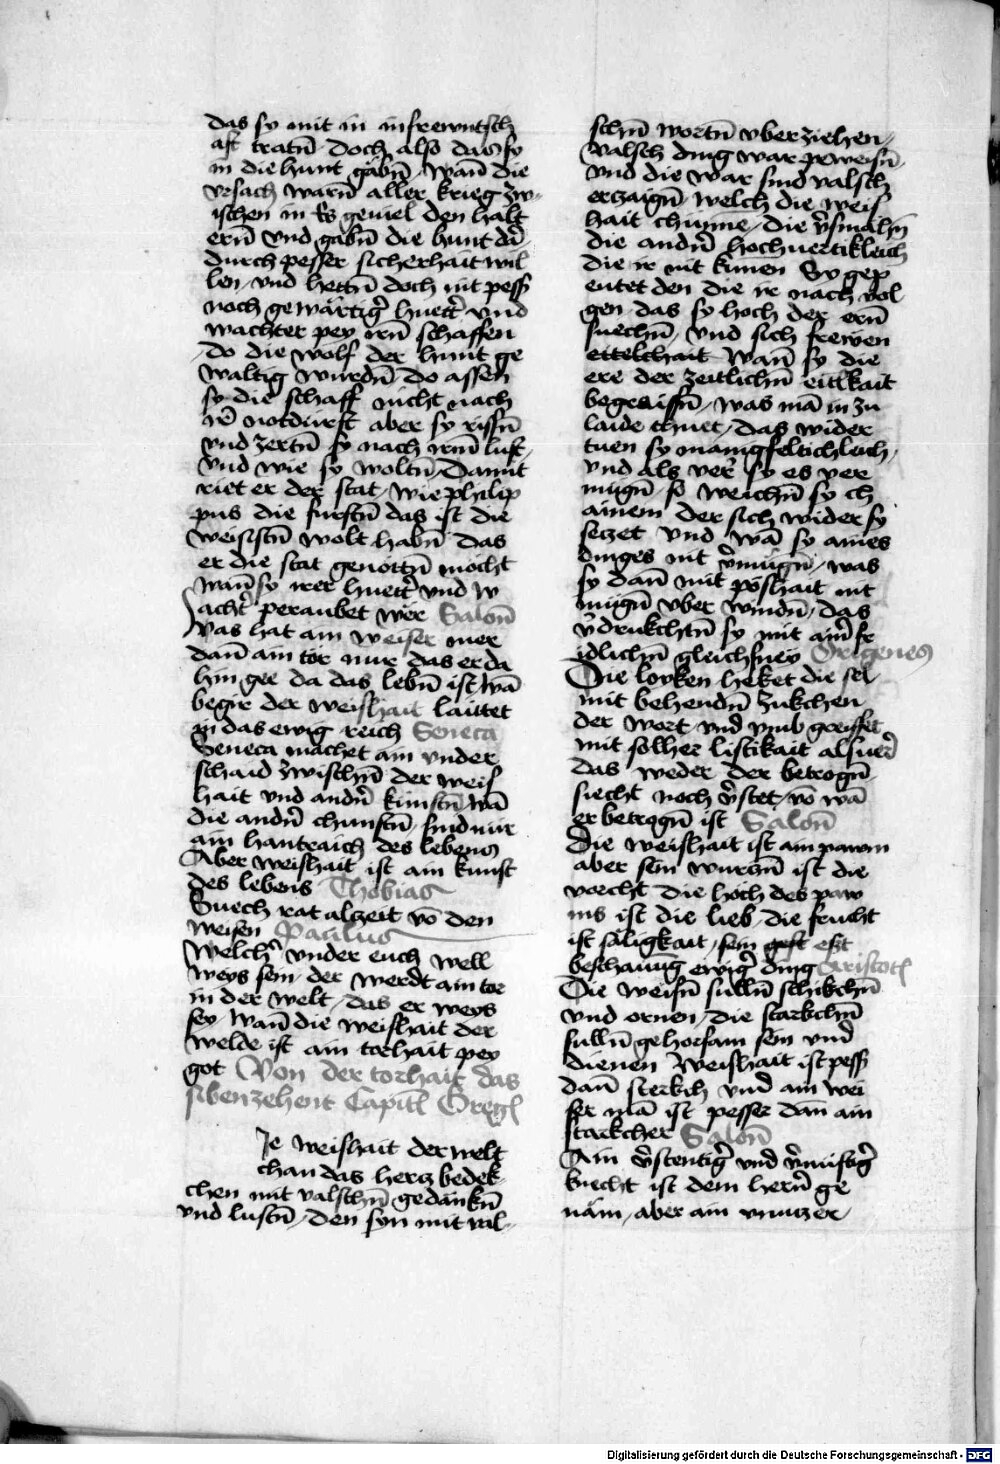 das sy mit in in frewntsch
aft tratn̄ doch also das sy
in die hunt gäbn̄ wan̄ die
vrsach warn̄ aller krieg zw
ischen in Es geuiel den halt
ern̄ vnd gabn̄ die hunt dar
durch pesser sicherhait wil
len vnd hettn̄ doch nit pess
noch gewärtig huett vnd
wachter pey irn̄ schaffen
Do die wolf der hunt ge
waltig wurdn̄ do assen
sy die schaff nicht nach
ir notdurft aber sy rissn̄
vnd zertn̄ sy nach irm̄ lust
vnd wie sy woltn̄ Damit
riet er der stat wie philip
pus die furstn̄ das ist die
weisistn̄ wolt habn̄ das
er die stat genottn̄ mocht
wan̄ sy irer huett vnd w
acht peraubet wer Salon̄
Was hat ain weiser mer
dan̄ ain tor nur das er da
hin gee da das lebn̄ ist wā
begir der weishait laittet
in das ewig reich Seneca
Seneca machet ain vnder
schaid zwischn̄ der weis
hait vnd andn̄ kunstn̄ wā
die andn̄ chunstn̄ sind nur
ain hantraich des lebens
Aber weishait ist ain kunst
des lebens Thobias
Suech rat alzeit vō den
weisen Paulus
Welch vnder euch well
weys sein der werdt ain tor
in der welt das er weys
sey wan̄ die weishait der
welde ist ain torhait pey
got Von der torhait das
sibenzehent Capitl Gregl
Je weishait der welt
chan das hercz bedek
chen mit valschn̄ gedänkn̄
vnd lustn̄ den syn mit val
schn̄ wortn̄ vber ziehen
valsch ding war peweisn̄
vnd die war sind valsch
erzaign̄ welch die weis
hait chunne die v̄smahn̄
die andn̄ hochuertikleich
die ir nit kunen Sy gep
eutet den die ir nach vol
gen das sy hoch der ern̄
suechn̄ vnd sich frewen
eittelchait wan̄ sy die
ere der zeitlichn̄ eitlkait
begreiffn̄ was mā in zu
laide thuet das wider
tuen sy manigfeltichleich
vnd als ver sy es ver
mugn̄ so weichn̄ sy ch
ainem der sich wider sy
seczet vnd wā sy aines
dinges nit v̄mugn̄ was
sy dan̄ mit poshait nit
mugn̄ vber windn̄ das
v̄drukchtn̄ sy mit aim̄ fr
idlichn̄ gleichsney Origenes
Die loyken heket die sel
mit behendn̄ zukchen
der wort vnd vmb greiffet
mit sölher listikait
das weder der betrogn̄
siecht noch v̄stet vō wā
er betrogn̄ ist Salon̄
Die weishait ist ain pawm
aber sein wurczn̄ ist die
vorcht die höch des paw
ms ist die lieb die frucht
ist säligkait sein gest est
beschaung ewig ding Aristotl
Die weisn̄ sulln̄ schikchn̄
vnd ornen die starkchn̄
sulln̄ gehorsam sein vnd
dienen Weishait ist pess
dan̄ sterkch vnd ain wei
ser mā ist pesser dan̄ ain
starkcher Salon̄
Ain v̄stentig vnd v̄nuftig
knecht ist dem hern̄ ge
näm aber ain vnnuczer